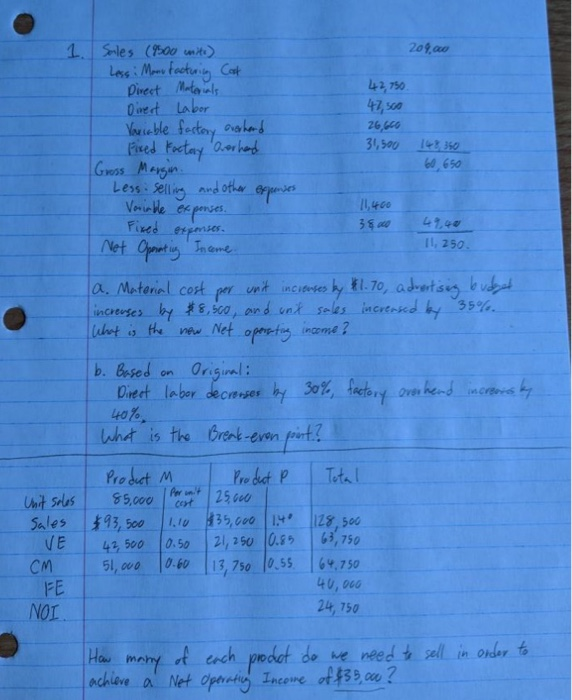 1. Sales (9500 units) 209,000
Less: Manufacturing Cost
Direct Materials 42,750
Direct Labor 47,500
Variable factory overhead 26,600
Fixed factory Overhead 31,500 148,350
Gross Margin. 60,650
Less: Selling and other expenses
Variable expenses. 11,400
Fixed expenses. 38,000 49,40
Net Operating Income 11,250.
a. Material cost per unit increases by $1.70, advertising budget
increases by $8,500, and unit sales increased by 35%.
What is the new Net operating income?
b. Based on Original:
Direct labor decreases by 30%, factory overhead increases by
40%.
What is the Break-even point?
Product M Product P Total
Unit Sales 85,000 Per unit cost 25,000
Sales $93,500 1.10 $35,000 1.40 128,500
VE 42,500 0.50 21,250 0.85 63,750
CM 51,000 0.60 13,750 0.55 64,750
FE 40,000
NOI. 24,750
How many of each product do we need to sell in order to
achieve a Net Operating Income of $35,000?